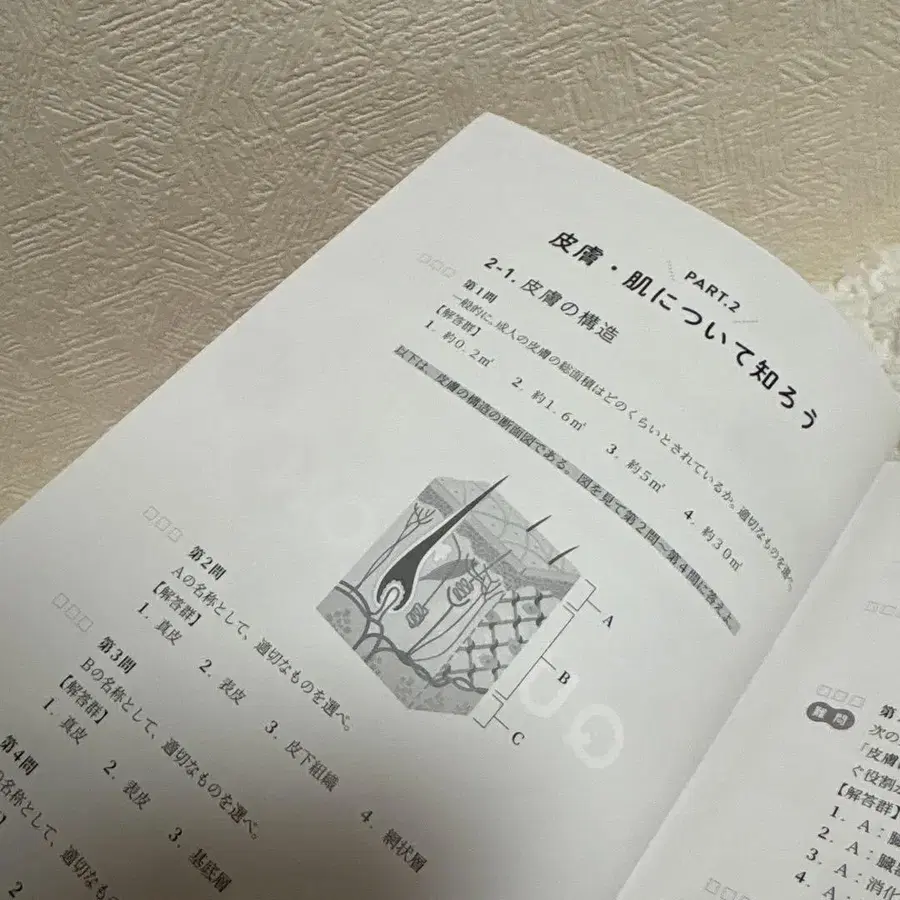 PART.2
皮膚・肌について知ろう
2-1. 皮膚の構造
第1問
一般的に、成人の皮膚の総面積はどのくらいとされているか。適切なものを選べ。
【解答群】
1. 約0.2㎡ 2. 約1.6㎡ 3. 約5㎡ 4. 約30㎡
以下は、皮膚の構造の断面図である。図を見て第2問〜第4問に答えよ
A
B
C
第2問
Aの名称として、適切なものを選べ。
【解答群】
1. 真皮 2. 表皮 3. 皮下組織 4. 網状層
第3問
Bの名称として、適切なものを選べ。
【解答群】
1. 真皮 2. 表皮 3. 基底層
第4問
の名称として、適切なもの
2
難問
次の
「皮膚
ぐ役割が
【解答群】
1. A:臓
2. A:臓器
3. A:消化
4. A: